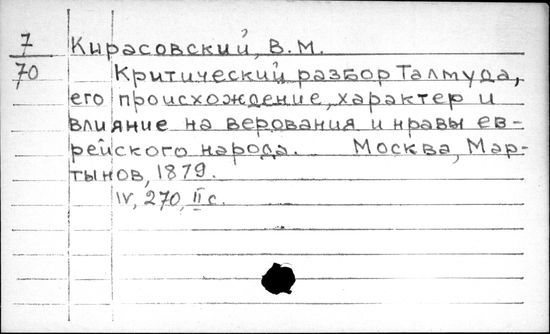 7 Кирасовский, В.М.
70 Критический разбор Талмуда,
его происхождение, характер и
влияние на верования и нравы ев-
рейского народа. Москва, Мар-
тынов, 1879.
IV, 270, II с.